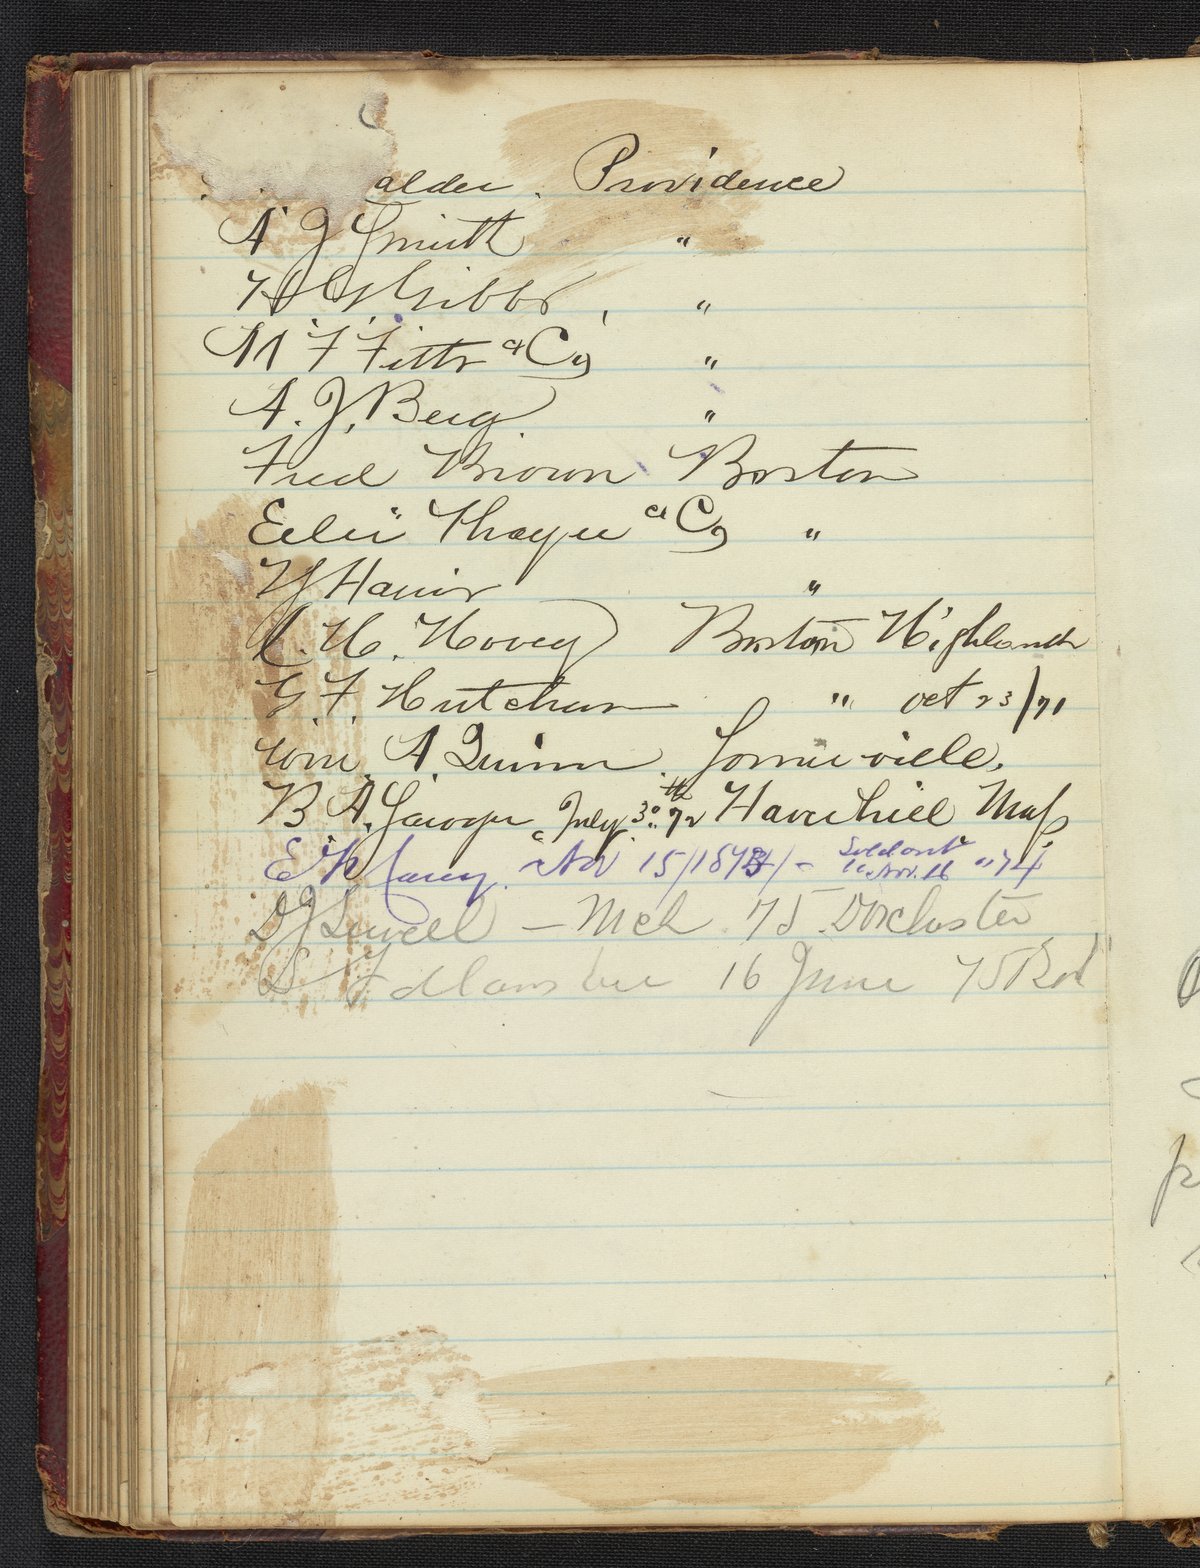 alder. Providence
A J Smith "
H G Gibbs, "
M F Fitts & Co "
A. J. Berg "
Fred Brown Boston
Thayer & Co "
Y Harris "
C. H. Hovey Boston Highlands
G. F. Hutchins " Oct 23/71
Wm A. Quinn. Somerville.
B A. Sawyer July 30th 72 Haverhill Mass
E. K. Carey. Nov 15/187 - Sold out
Nov. 16 "74
D J Sewell - Mch 75 Dorchester
16 June 75 Bos